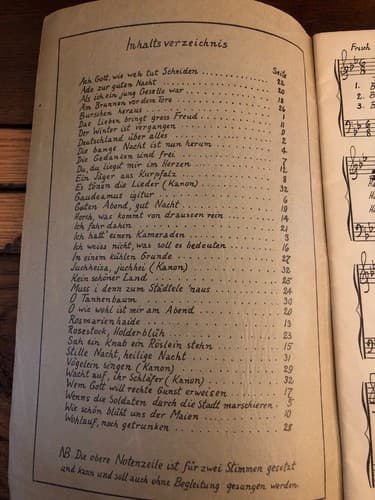 Inhaltsverzeichnis
Seite
Ach Gott, wie weh tut Scheiden 22
Ade zur guten Nacht 20
Als ich ein jung Geselle war 18
Am Brunnen vor dem Tore 26
Burschen heraus 1
Das Lieben bringt gross Freud 11
Der Winter ist vergangen 9
Deutschland über alles 2
Die bange Nacht ist nun herum 4
Die Gedanken sind frei 7
Du, du liegst mir im Herzen 12
Ein Jäger aus Kurpfalz 8
Es tönen die Lieder (Kanon) 32
Gaudeamus igitur 6
Guten Abend, gut Nacht 19
Horch, was kommt von draussen rein 14
Ich fahr dahin 21
Ich hatt' einen Kameraden 3
Ich weiss nicht, was soll es bedeuten 16
In einem kühlen Grunde 27
Juchheiza, juchhei (Kanon) 32
Kein schöner Land 25
Muss i denn zum Städtele 'naus 24
O Tannenbaum 30
O wie wohl ist mir am Abend 20
Rosmarienhaide 13
Rosestock, Holderblüh 23
Sah ein Knab ein Röslein stehn 15
Stille Nacht, heilige Nacht 31
Vögelein singen (Kanon) 29
Wacht auf, ihr Schläfer (Kanon) 32
Wem Gott will rechte Gunst erweisen 17
Wenns die Soldaten durch die Stadt marschieren 5
Wie schön blüht uns der Maien 10
Wohlauf, noch getrunken 28
NB. Die obere Notenzeile ist für zwei Stimmen gesetzt
und kann und soll auch ohne Begleitung gesungen werden.
Frisch
1.
2.
3.